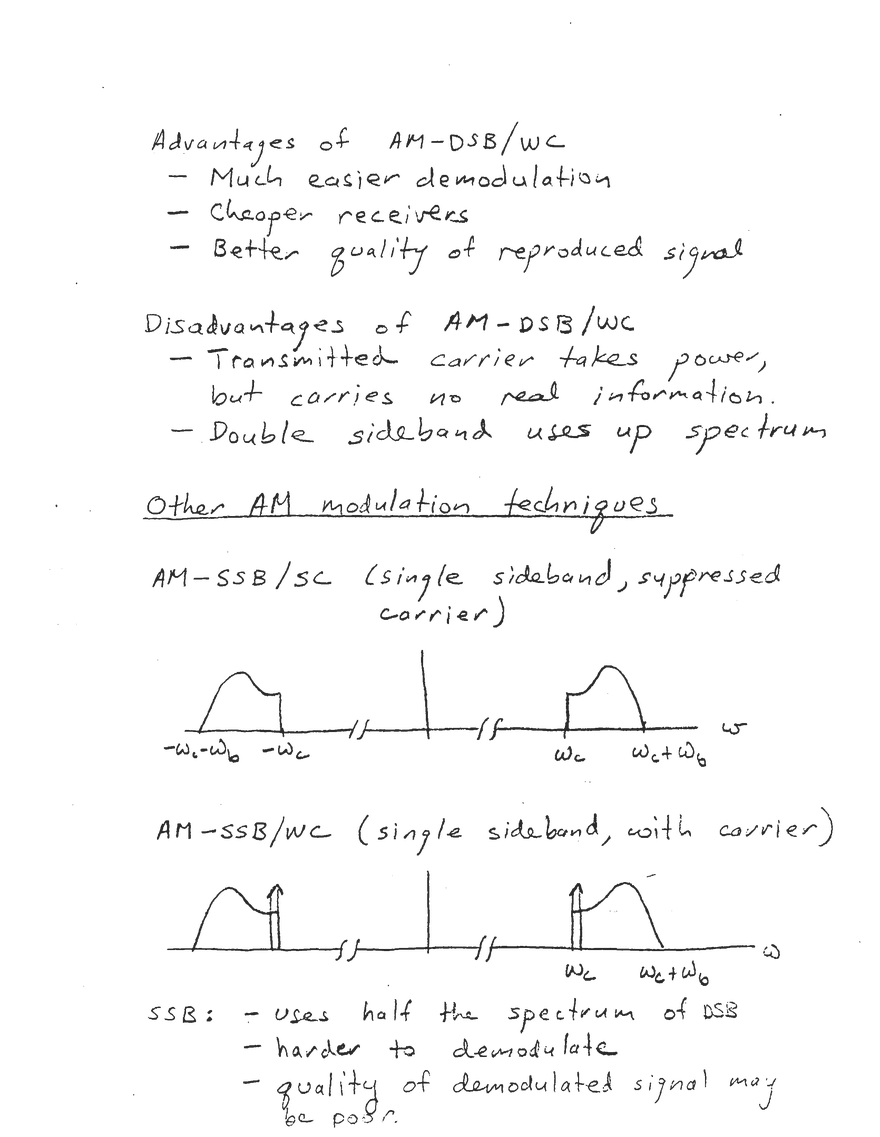 Advantages of AM-DSB/WC
- Much easier demodulation
- Cheaper receivers
- Better quality of reproduced signal
Disadvantages of AM-DSB/WC
- Transmitted carrier takes power,
but carries no real information.
- Double sideband uses up spectrum
Other AM modulation techniques
AM-SSB/SC (single sideband, suppressed
carrier)
-ωc-ωb -ωc ωc ωc+ωb ω
AM-SSB/WC (single sideband, with carrier)
ω
ωc ωc+ωb
SSB: - uses half the spectrum of DSB
- harder to demodulate
- quality of demodulated signal may
be poor.